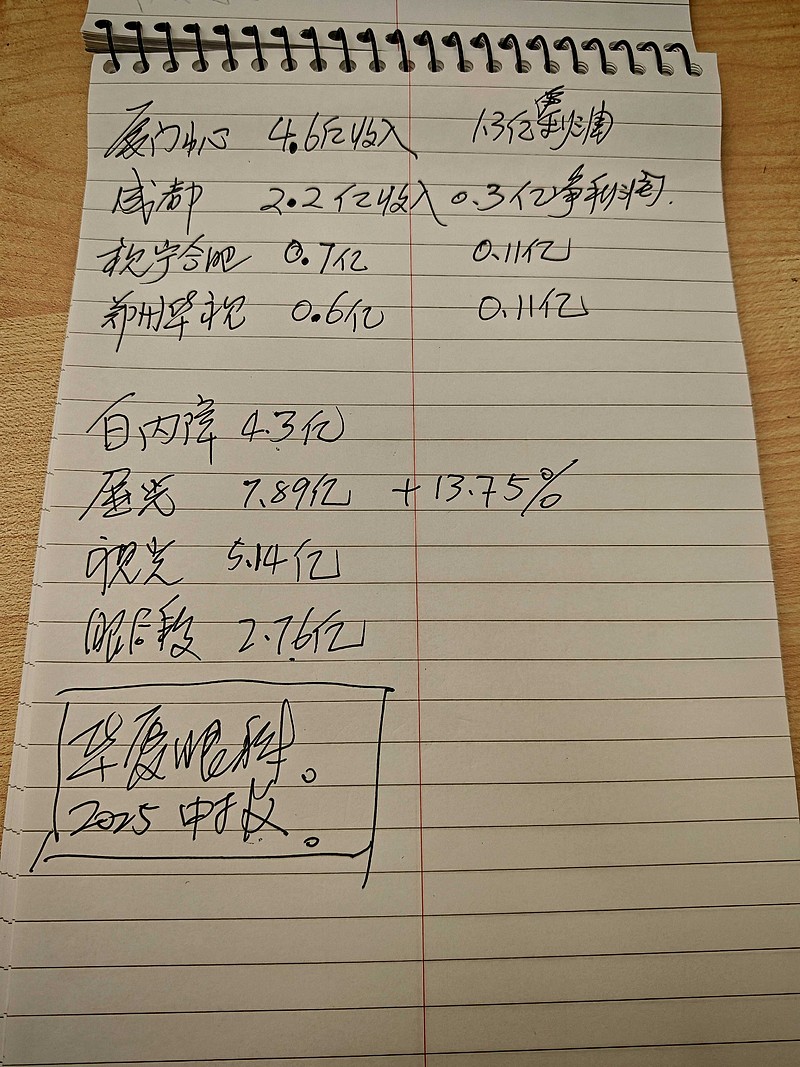 厦门中心 4.6亿收入 1.3亿净利润
成都 2.2亿收入 0.3亿净利润.
视宁合肥 0.7亿 0.11亿
郑州华视 0.6亿 0.11亿
白内障 4.3亿
屈光 7.89亿 +13.75%
视光 5.14亿
眼后段 2.76亿
华厦眼科。
2025 中报。